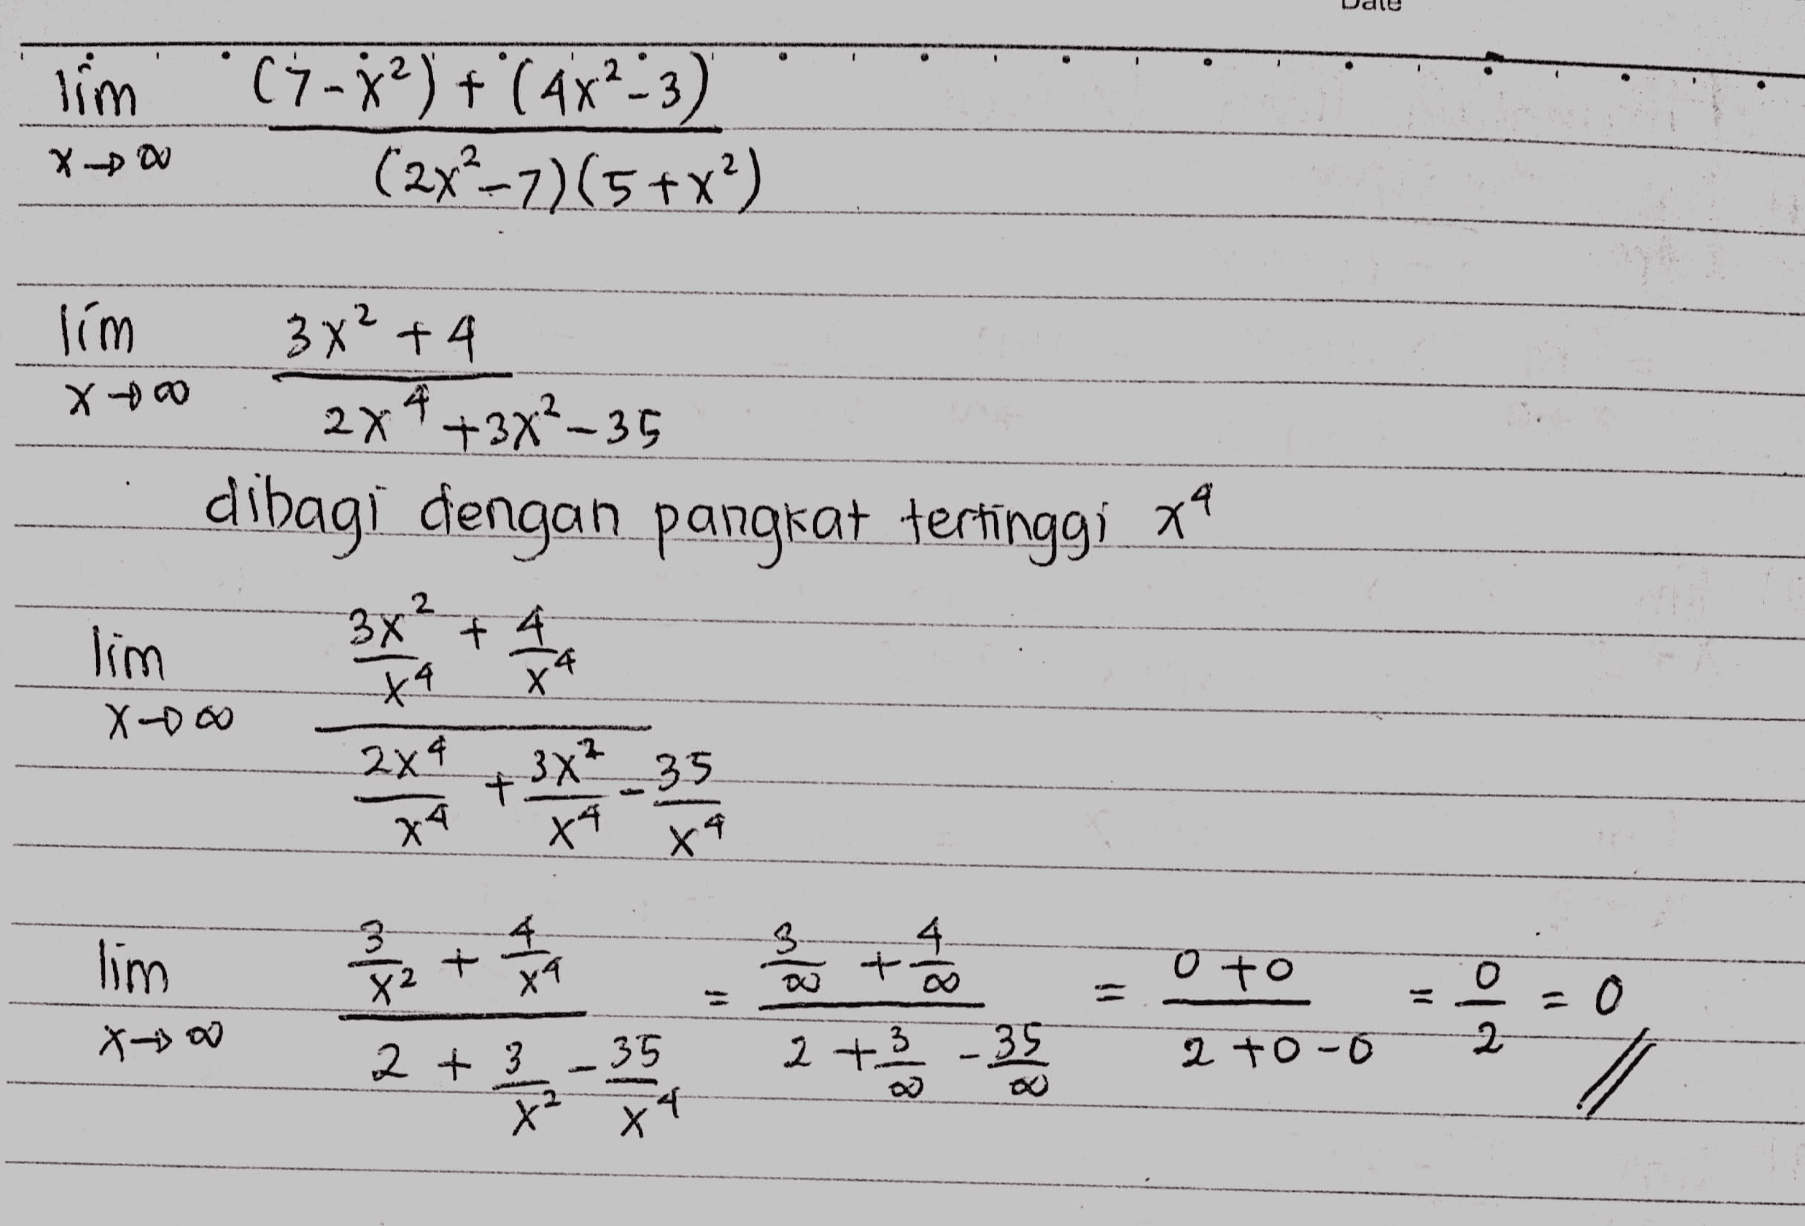 Date
lim (7-x²) + (4x²-3)
x→∞ (2x²-7)(5+x²)
lim 3x² + 4
x→∞ 2x⁴+3x²-35
dibagi dengan pangkat tertinggi x⁴
lim 3x²/x⁴ + 4/x⁴
x→∞ 2x⁴/x⁴ + 3x²/x⁴ - 35/x⁴
lim 3/x² + 4/x⁴ = 3/∞ + 4/∞ = 0+0 = 0 = 0
x→∞ 2 + 3/x² - 35/x⁴ 2 + 3/∞ - 35/∞ 2+0-0 2